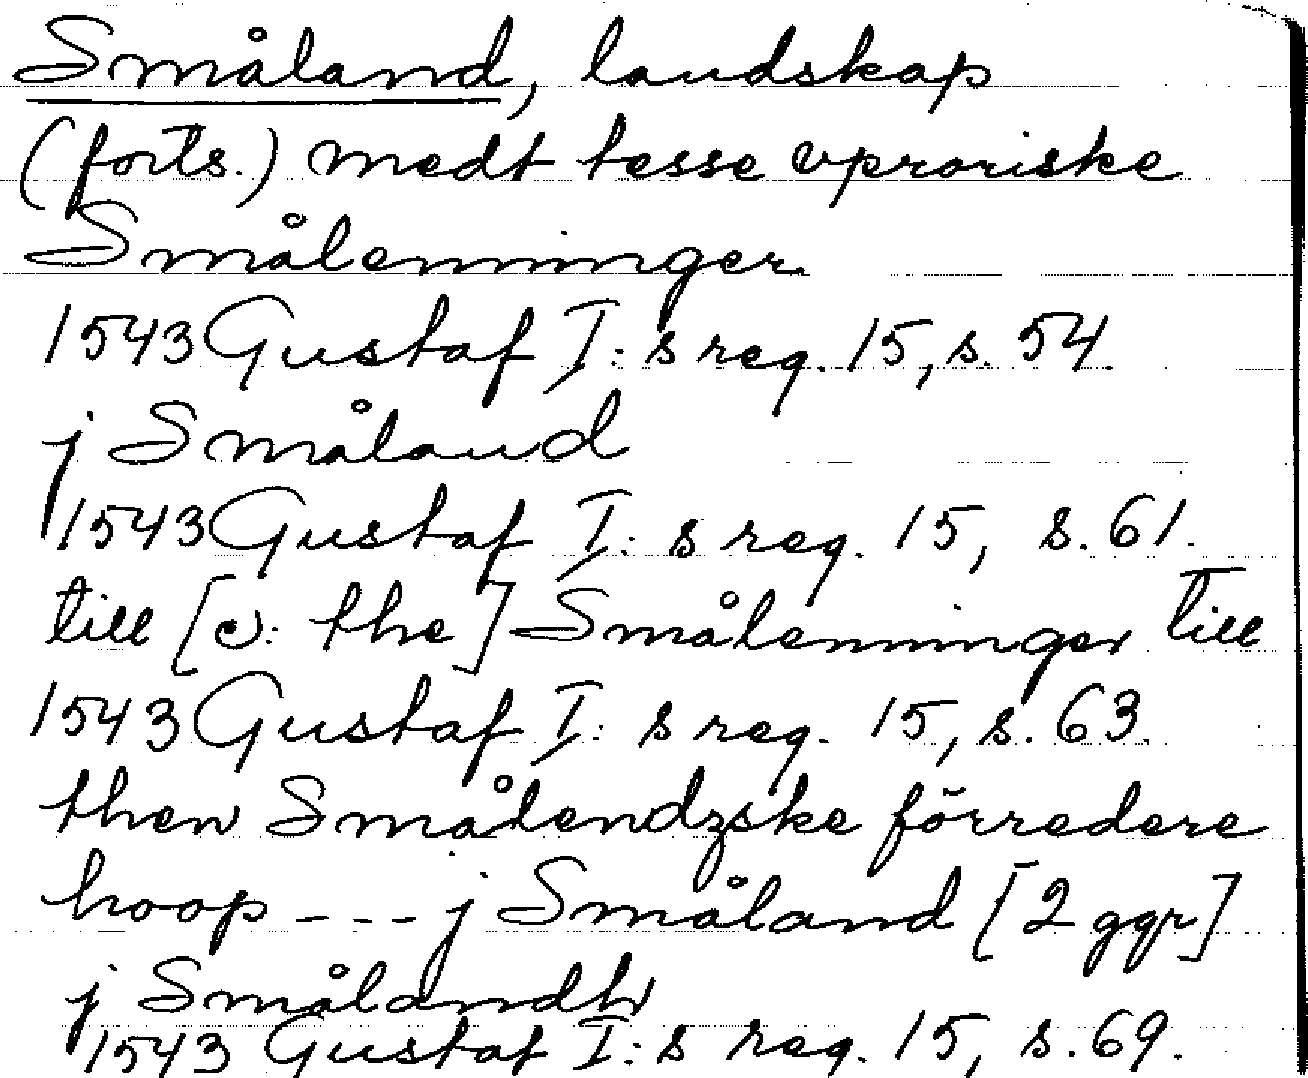 Småland, landskap
(forts.) medt tesse vproriske
Smålenninger.
1543 Gustaf I:s reg. 15, s. 54.
j Småland
1543 Gustaf I:s reg. 15, s. 61.
till [ɔ: the] Smålenninger till
1543 Gustaf I:s reg. 15, s. 63.
then Smålendzske förredere
hoop --- j Småland [2 ggr]
j Smålandh
1543 Gustaf I:s reg. 15, s. 69.